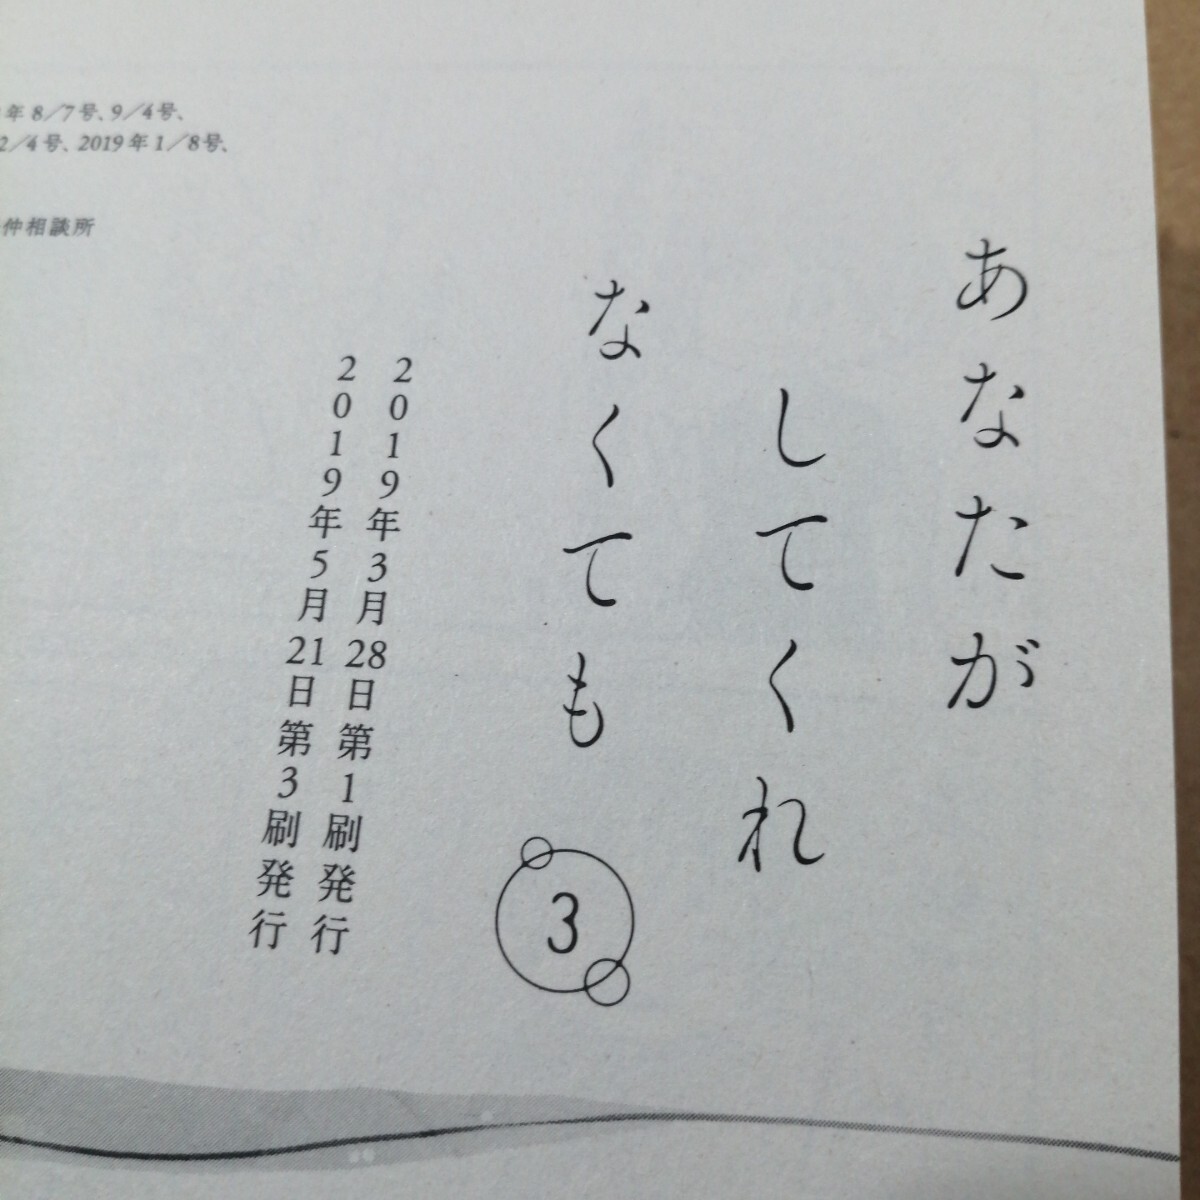 あなたが
してくれ
なくても
3
2019年3月28日第1刷発行
2019年5月21日第3刷発行
年8／7号、9／4号、
2／4号、2019年1／8号、
仲相談所